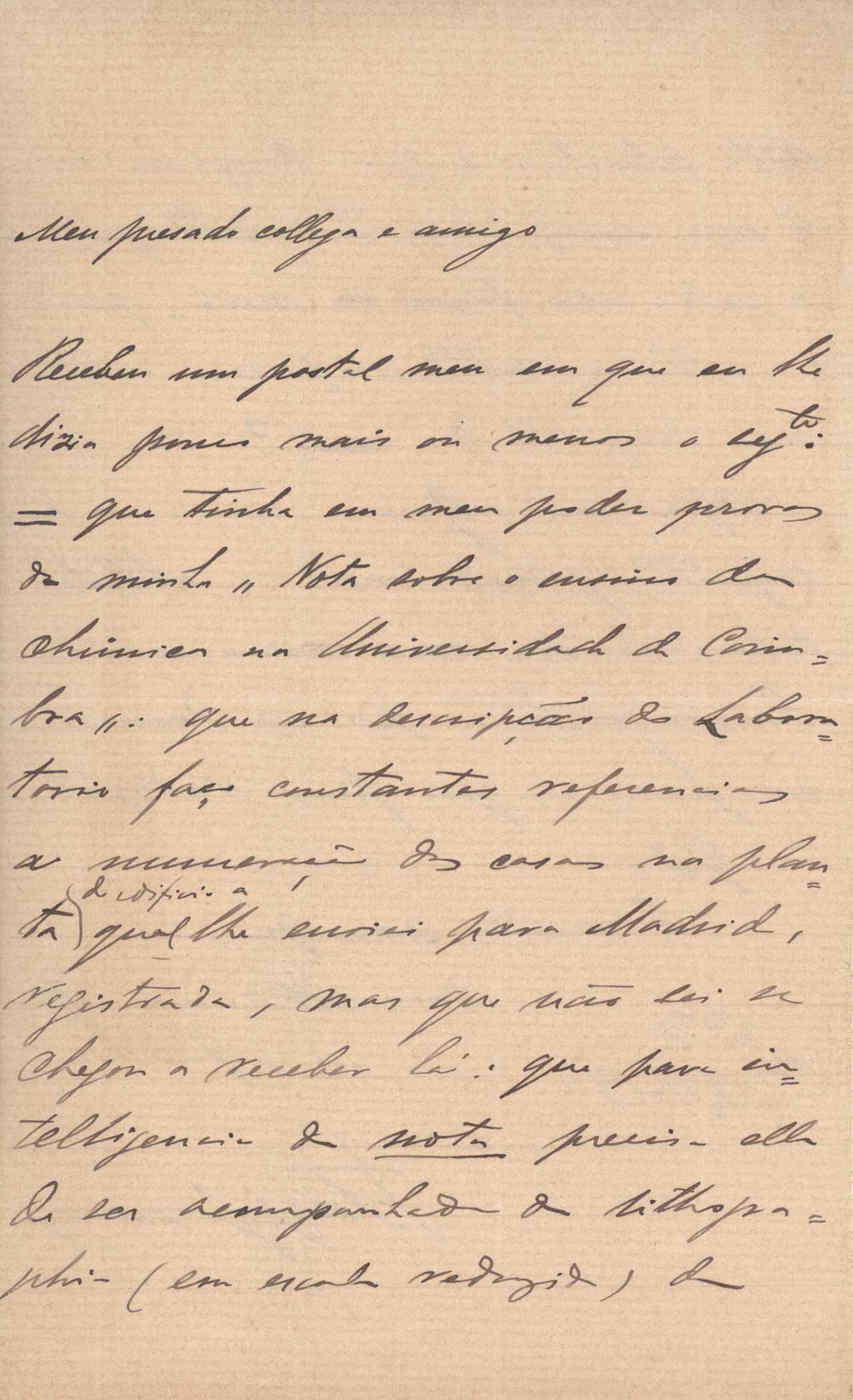 Meu presado collega e amigo
Recebeu um postal meu em que eu lhe
dizia pouco mais ou menos o segte:
= que tinha em meu poder provas
da minha „ Nota sobre o ensino da
chimica na Universidade de Coim=
bra „: que na descripção do Labora=
torio faço constantes referencias
a numeração das casas na plan=
do edificio a
ta qual lhe enviei para Madrid,
registrada, mas que não sei se
chegou a receber lá: que para in=
telligencia da nota precisa ella
de ser acompanhada da lithogra=
phia (em escala reduzida) da